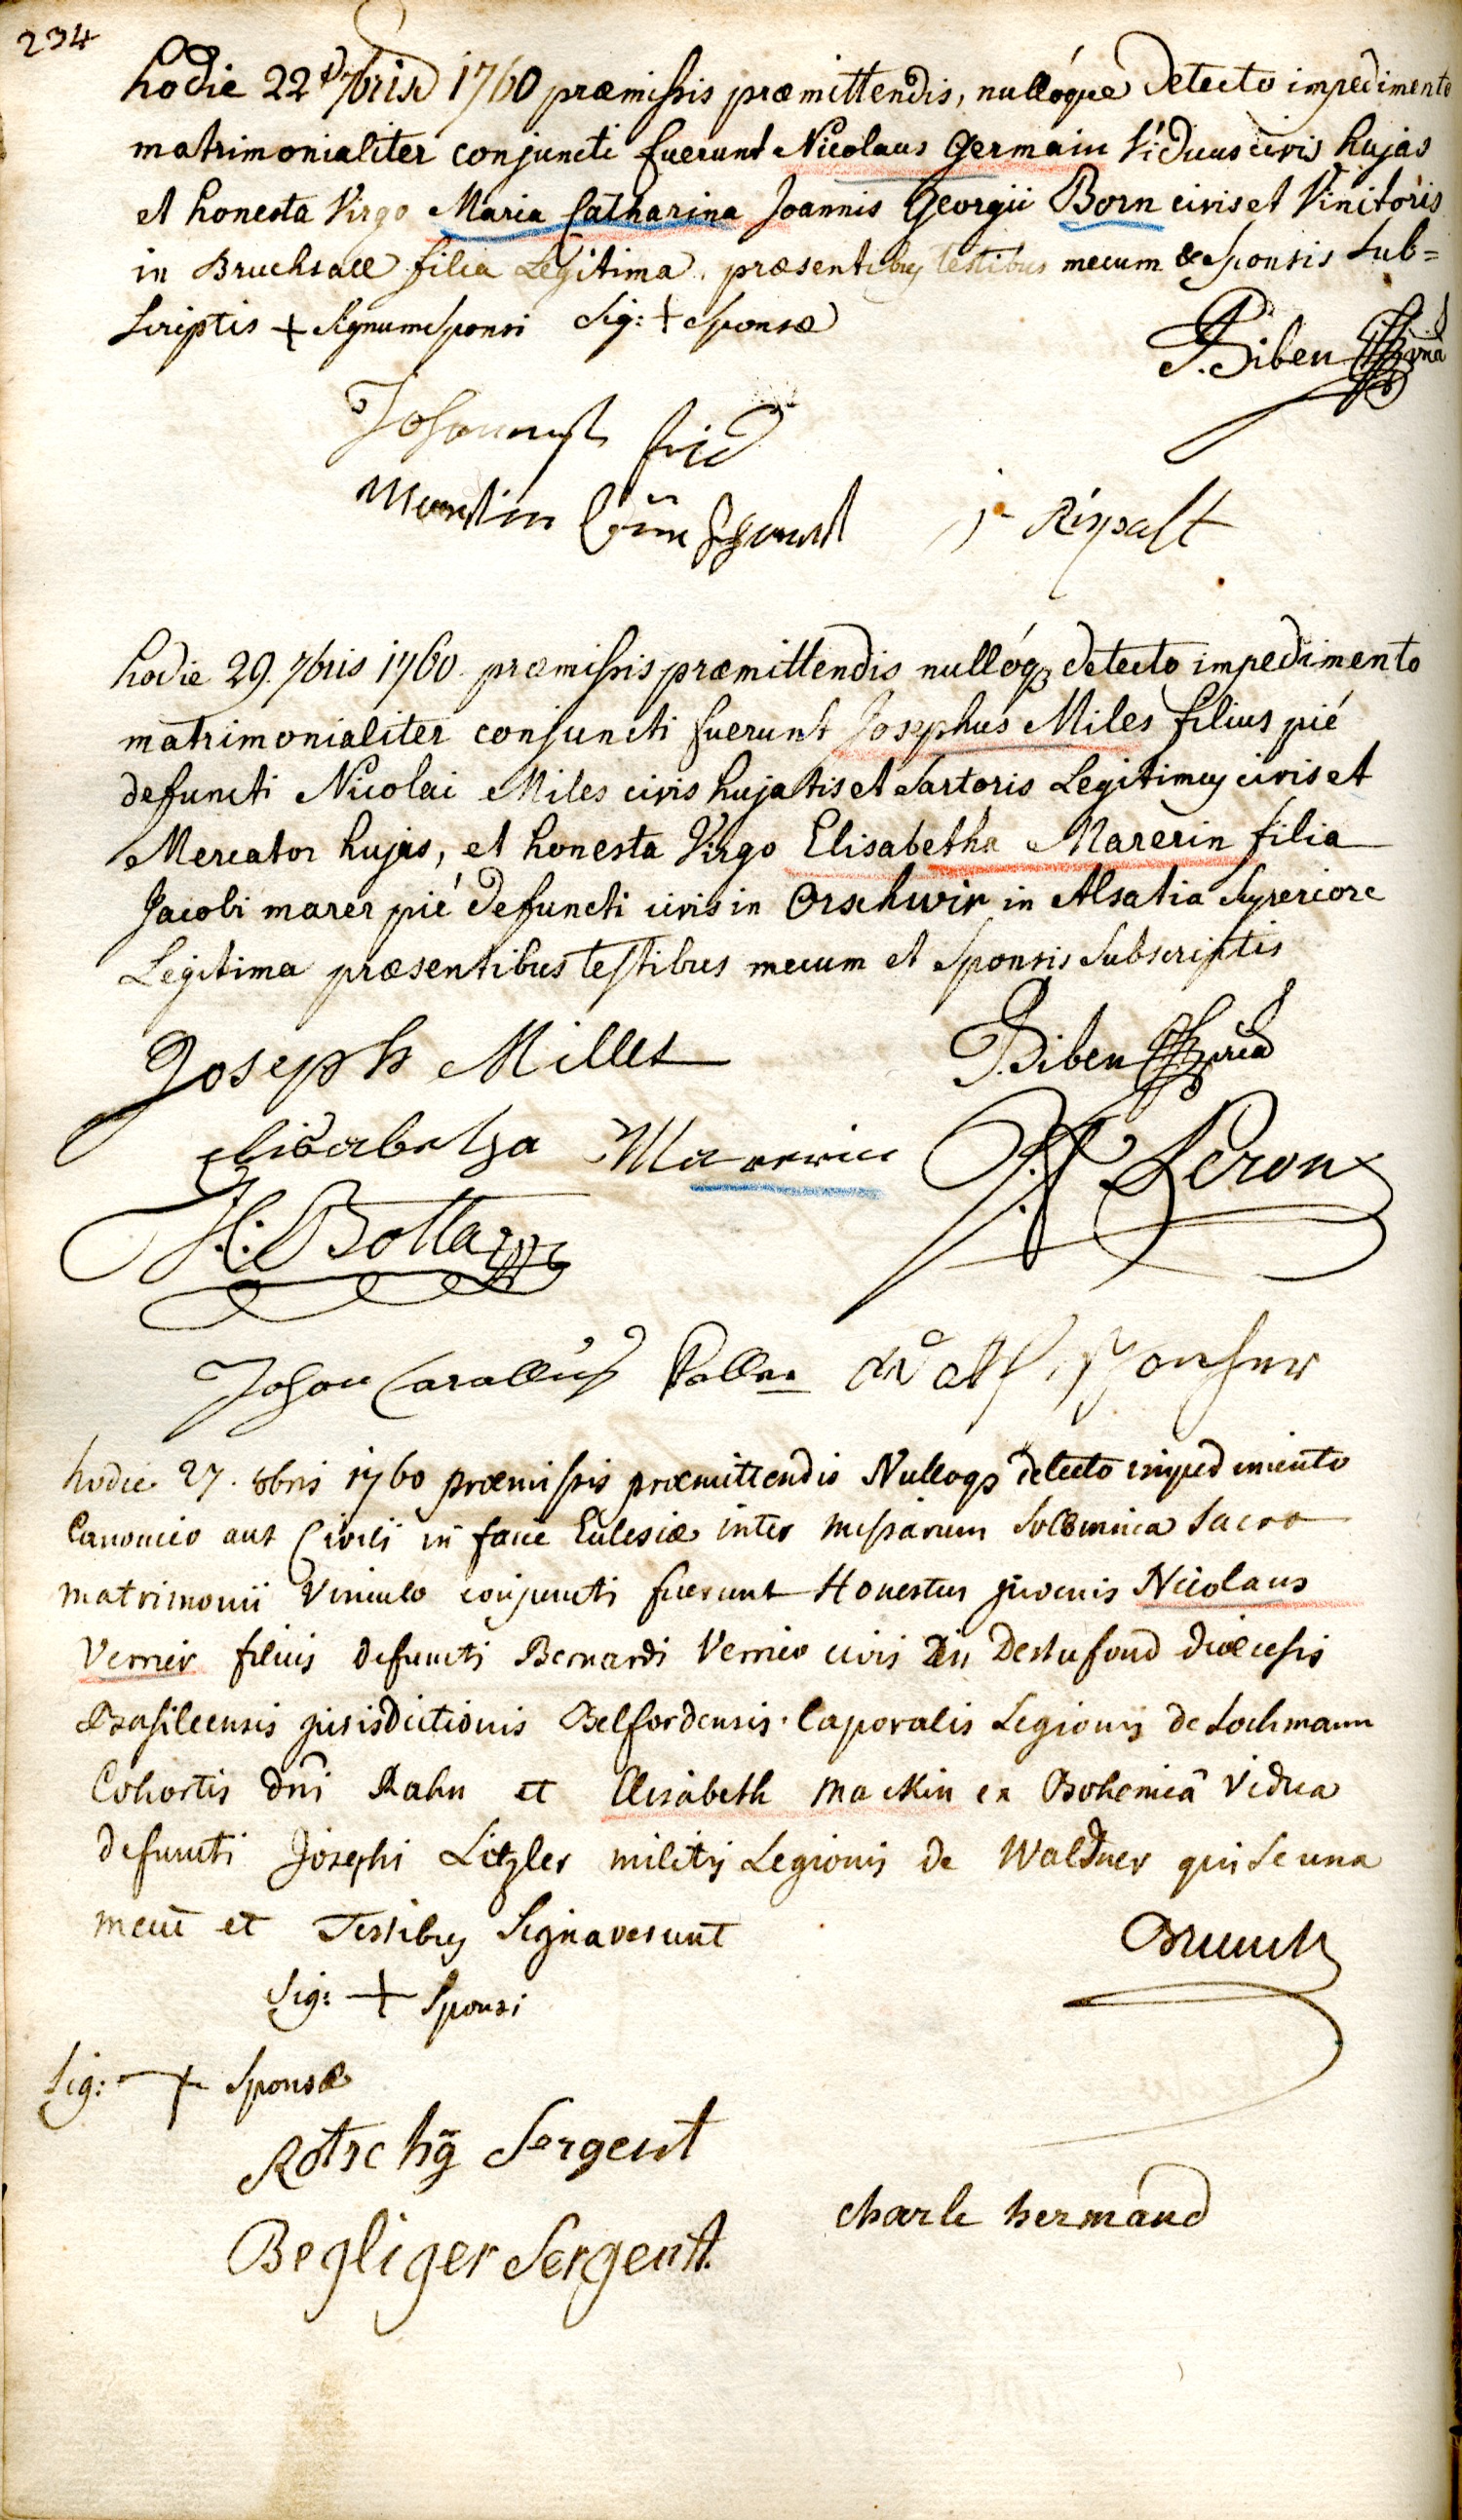 234
hodie 22 7bris 1760 præmissis præmittendis, nullóque detecto impedimento
matrimonialiter conjuncti fuerunt Nicolaus Germain Viduus civis hujas
et honesta Virgo Maria Catharina Joannis Georgii Born civis et Vinitoris
in Bruchsall filia Legitima. præsentibus testibus mecum & Sponsis Sub=
scriptis + Signum Sponsi Sig: + Sponsæ
P. Biben
Johannes frid
Martin
j Rixpalt
hodie 29. 7bris 1760. præmissis præmittendis nullóq3 detecto impedimento
matrimonialiter conjuncti fuerunt Josephus Miles filius pié
defuncti Nicolai Miles civis hujatis et Sartoris Legitimus civis et
Mercator hujas, et honesta Virgo Elisabetha Marerin filia
Jacobi marer pié defuncti civis in Orschwir in Alsatia Superiore
Legitima præsentibus testibus mecum et Sponsis Subscriptis
Joseph Milles
P. Biben
Elisabetha Marerin
Leroux
H: Botta
Johan
hodie 27. 8bris 1760 præmissis præmittendis Nulloq3 detecto impedimento
Canonico aut Civili in facie Eclesiæ inter missarum Solemnica Sacro
matrimonii Vinculo conjuncti fuerunt Honestus juvenis Nicolaus
Verrier filius defuncti Bernardi Verrier civis in Destufond diœcesis
Basileensis jurisdictionis Belfordensis. Caporalis Legionis de Lochmann
Cohortis dni Rahn et Elisabeth Mackin ex Bohemiâ Vidua
defuncti Josephi Litzler militis Legionis de Waldner qui se una
mecū et Testibus Signaverunt
Brunck
Sig: + Sponsi
Sig: + Sponsæ
Rotschÿ Sergent
charle hermand
Begliger Sergent.